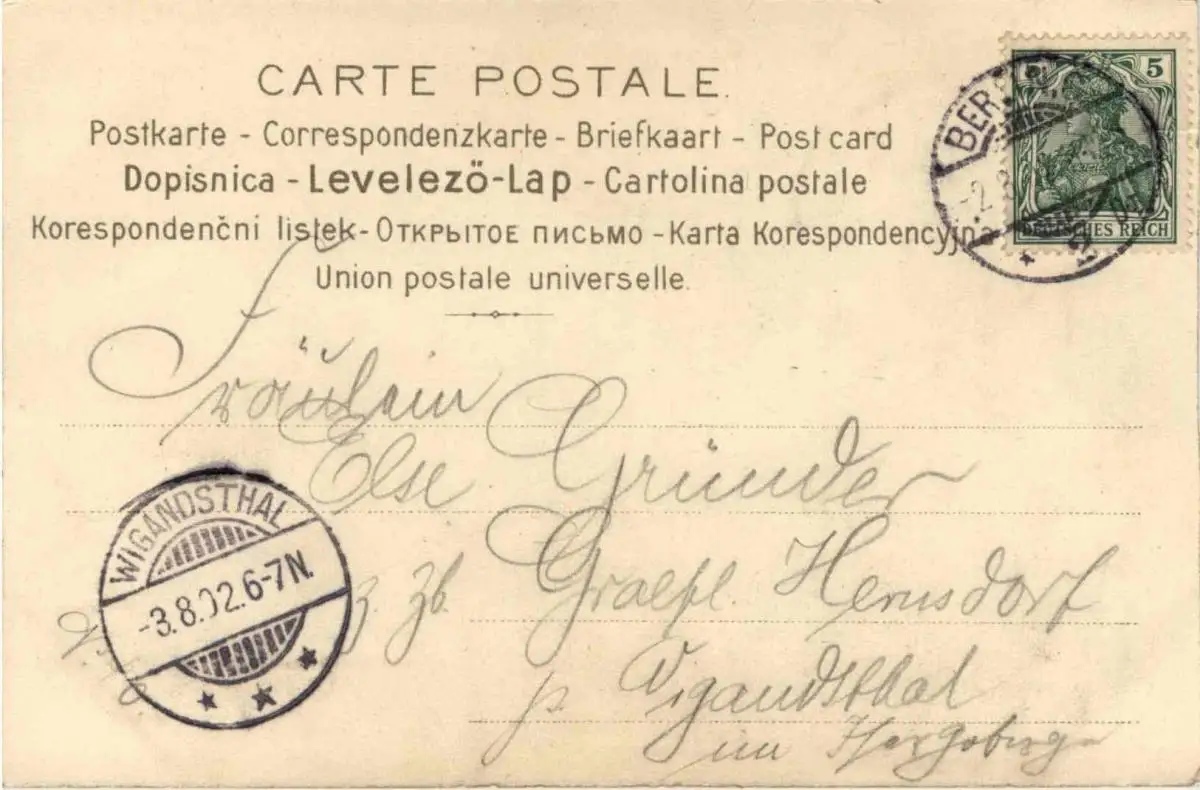 CARTE POSTALE.
Postkarte - Correspondenzkarte - Briefkaart - Post card
Dopisnica - Levelező-Lap - Cartolina postale
Korespondenční listek - Открытое письмо - Karta Korespondencyjna
Union postale universelle.
5
DEUTSCHES REICH
BERLIN
2
Fräulein
Else Gründer
z. Zb. Graefl. Hernsdorf
p. Wigandsthal
im
WIGANDSTHAL
-3.8.02.6-7N.